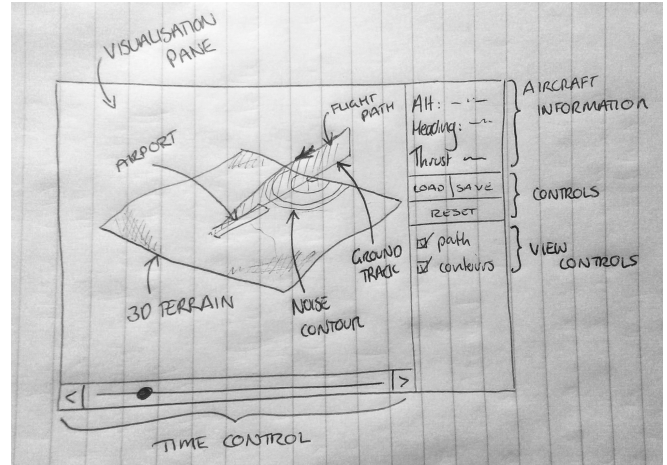 VISUALISATION
PANE
FLIGHT
PATH
AIRPORT
3D TERRAIN
NOISE
CONTOUR
GROUND
TRACK
Alt:
Heading:
Thrust
LOAD | SAVE
RESET
path
contours
AIRCRAFT
INFORMATION
CONTROLS
VIEW
CONTROLS
< >
TIME CONTROL